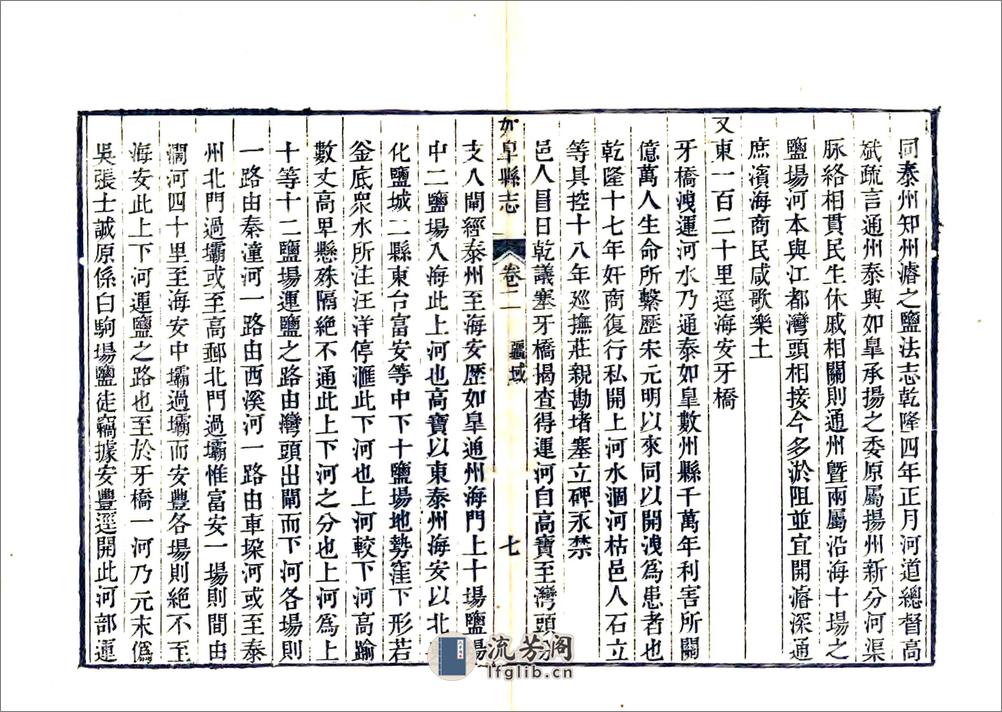 同泰州知州濬之鹽法志乾隆四年正月河道總督高
斌疏言通州泰興如皐承揚之委原屬揚州新分河渠
脉絡相貫民生休戚相關則通州暨兩屬沿海十場之
鹽場河本與江都灣頭相接今多淤阻並宜開濬深通
庶濱海商民咸歌樂土
又東一百二十里逕海安牙橋
牙橋洩運河水乃通泰如皐數州縣千萬年利害所關
億萬人生命所繫歷宋元明以來同以開洩爲患者也
乾隆十七年奸商復行私開上河水涸河枯邑人石立
等具控十八年廵撫莊親勘堵塞立碑永禁
邑人昌日乾議塞牙橋揭查得運河自高寶至灣頭
如皐縣志
卷二
疆域
七
支入閘經泰州至海安歷如皐通州海門上十場鹽場
中二鹽場入海此上河也高寶以東泰州海安以北
化鹽城二縣東台富安等中下十鹽場地勢窪下形若
釜底衆水所注汪洋停滙此下河也上河較下河高踰
數丈高卑懸殊隔絶不通此上下河之分也上河爲上
十等十二鹽場運鹽之路由灣頭出閘而下河各場則
一路由秦潼河一路由西溪河一路由車垜河或至泰
州北門過壩或至高郵北門過壩惟富安一場則間由
澗河四十里至海安中壩過壩而安豐各場則絶不至
海安此上下河運鹽之路也至於牙橋一河乃元末僞
吳張士誠原係白駒場鹽徒竊據安豐逕開此河部運
流芳阁
lfglib.cn